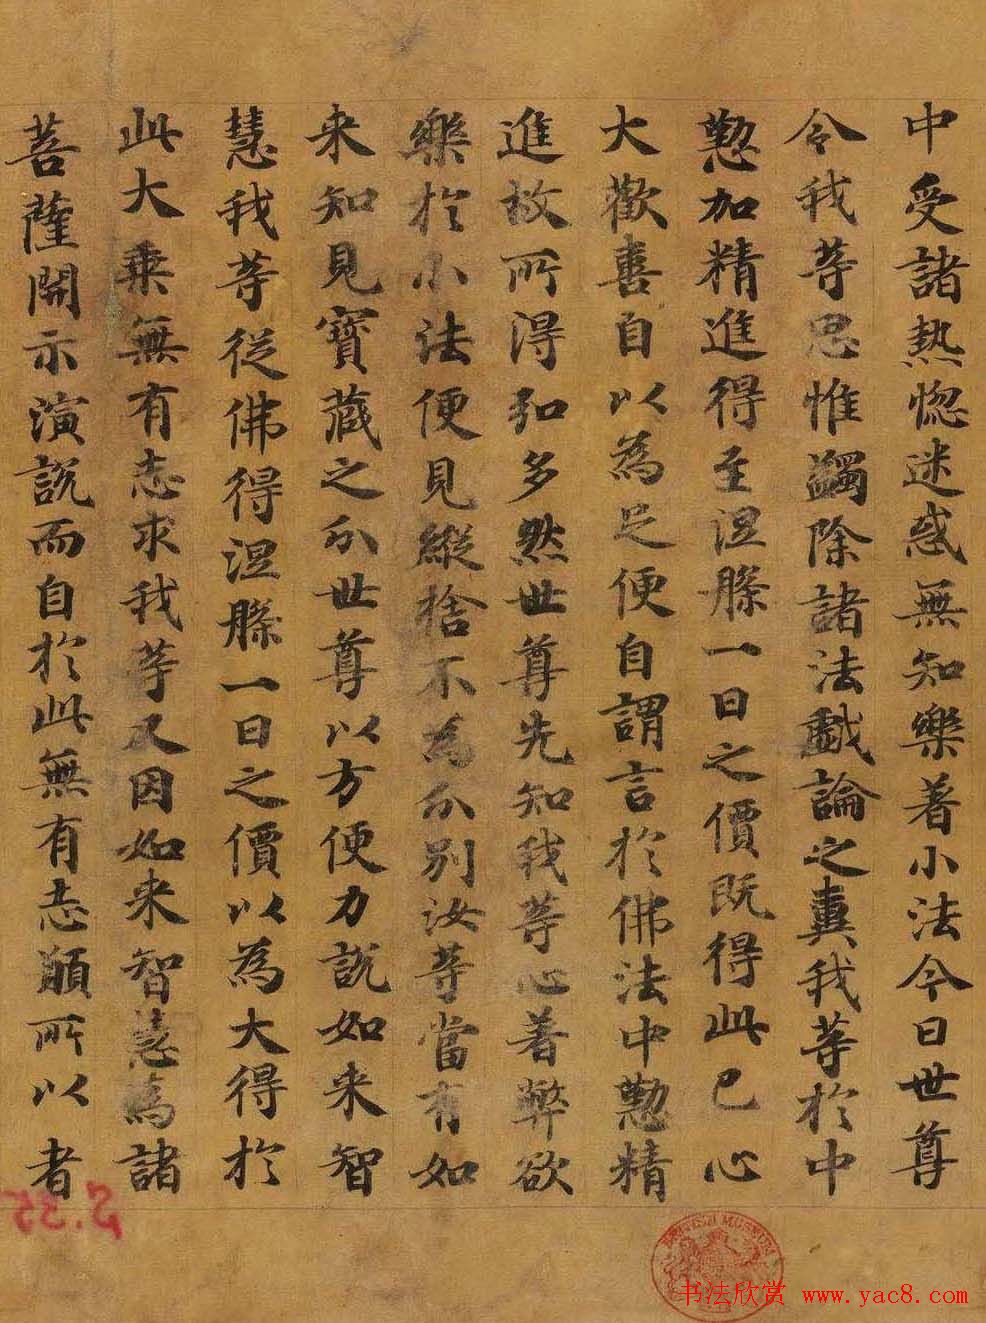 中受諸熱惚迷惑無知樂著小法今日世尊
令我等思惟蠲除諸法戲論之糞我等於中
懃加精進得至涅槃一日之價既得此已心
大歡喜自以為足便自謂言於佛法中懃精
進故所得知多然世尊先知我等心著弊欲
樂於小法便見縱捨不為分別汝等當有如
来知見寶藏之分世尊以方便力說如来智
慧我等從佛得涅槃一日之價以為大得於
此大乘無有志求我等又因如来智慧為諸
菩薩開示演說而自於此無有志願所以者
S.55
BRITISH MUSEUM
书法欣赏 www.yac8.com